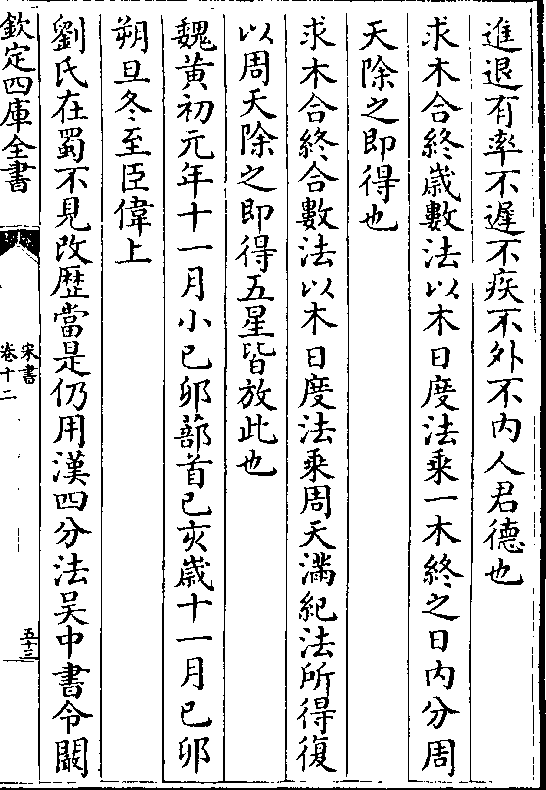 進退有率不遲不疾不外不内人君德也
求木合終嵗數法以木日度法乘一木終之日内分周
天除之即得也
求木合終合數法以木日度法乘周天滿紀法所得復
以周天除之即得五星皆放此也
魏黄初元年十一月小己卯蔀首己亥嵗十一月己卯
朔旦冬至臣偉上
劉氏在蜀不見改歴當是仍用漢四分法吴中書令闞
欽定四庫全書
宋書
卷十二
五十三